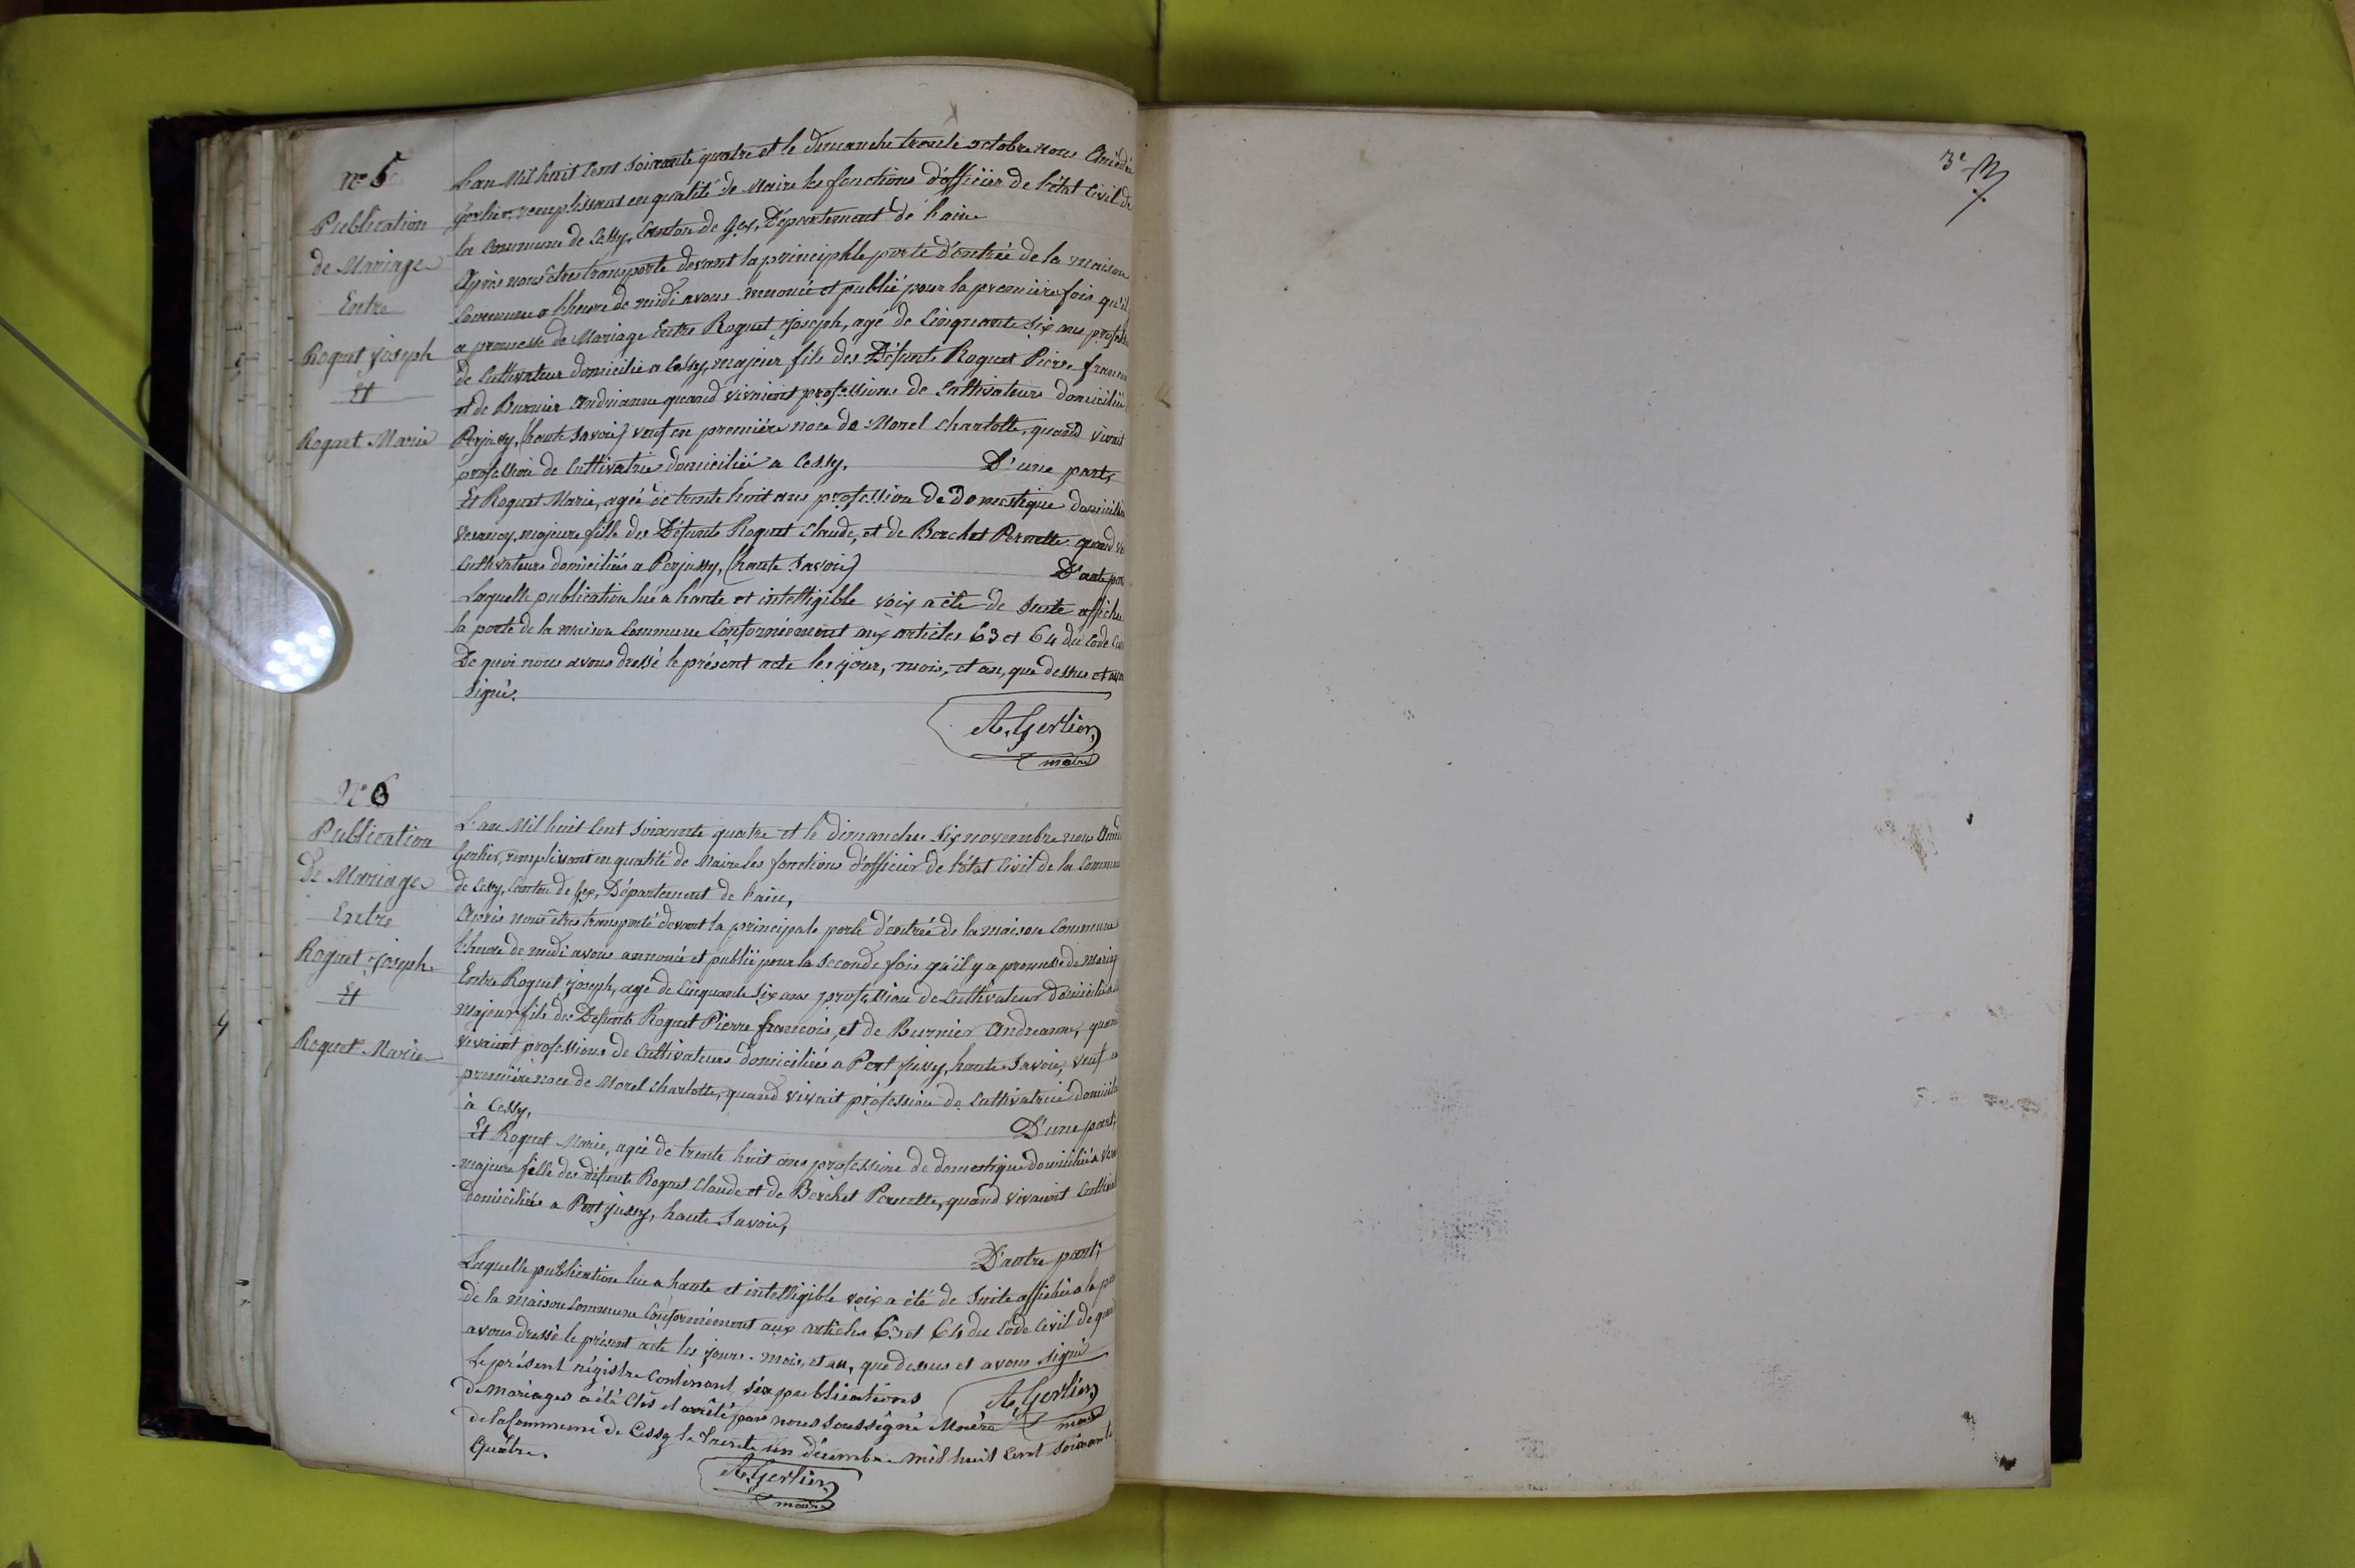 N° 5
Publication
de Mariage
Entre
Roguet Joseph
Et
Roguet Marie
L'an Mil huit Cent Soixante quatre et le dimanche trente octobre nous Amédée
Gerlier, remplissant en qualité de Maire les fonctions d'officier de l'état Civil de
la Commune de Cessy, Canton de Gex, Département de l'ain
Après nous être transporté devant la principale porte d'entrée de la Maison
Commune a l'heure de midi avons annoncé et publié pour la première fois qu'il
a promesse de Mariage Entre Roguet Joseph, agé de Cinquante Six ans profess
de Cultivateur domicilié a Cessy, majeur fils des Défunts Roguet Pierre francois
et de Burnier Andrianne quand vivaient professions de Cultivateurs domiciliés
Perjussy, (haute Savoie) veuf en première noce de Morel Charlotte, quand vivait
profession de Cultivatrice domiciliée a Cessy, D'une part,
Et Roguet Marie, agée de trente huit ans profession de Domestique domiciliée
Vesancy, majeure fille des Défunts Roguet Claude, et de Berchet Pernette quand vi
Cultivateurs domiciliés a Perjussy, (haute Savoie) D'autre par
Laquelle publication lue a haute et intelligible voix a été de Suite affiché
la porte de la maison Commune Conformément aux articles 63 et 64 du Code Civ
De quoi nous avons dressé le présent acte les jour, mois, et an, que dessus et avo
Signé.
A. Gerlier
maire
N° 6
Publication
de Mariage
Entre
Roguet Joseph
Et
Roguet Marie
L'an Mil huit Cent Soixante quatre et le dimanche Six novembre nous Améd
Gerlier, remplissant en qualité de Maire les fonctions d'officier de l'état Civil de la Commun
de Cessy, Canton de Gex, Département de l'ain,
Après nous être transporté devant la principale porte d'entrée de la maison Commune
l'heure de midi avons annoncé et publié pour la Seconde fois qu'il y a promesse de Mariag
Entre Roguet Joseph, agé de Cinquante Six ans profession de Cultivateur domicilié a
Majeur fils des Défunts Roguet Pierre francois, et de Burnier Andreanne, quand
vivaient professions de Cultivateurs domiciliés a Port Jussy, haute Savoie, veuf en
première noce de Morel Charlotte, quand vivait profession de Cultivatrice domicilié
à Cessy, D'une part,
Et Roguet Marie, agée de trente huit ans profession de domestique domiciliée a Ves
majeure fille des défunts Roguet Claude et de Berchet Pernette, quand vivaient Cultiv
domiciliés a Port Jussy, haute Savoie,
D'autre part,
Laquelle publication lue a haute et intelligible voix a été de Suite affichée a la po
de la Maison Commune Conformément aux articles 63 et 64 du Code Civil de quoi
avons dressé le présent acte les jours. mois, et an, que dessus et avons Signé
A. Gerlier
maire
Le présent régistre Contenant six publications
de mariages a été Clos et arrêté par nous soussigné Maire
de la Commune de Cessy le Trente un décembre mil huit Cent Soixante
Quatre.
A. Gerlier
maire
3e M.